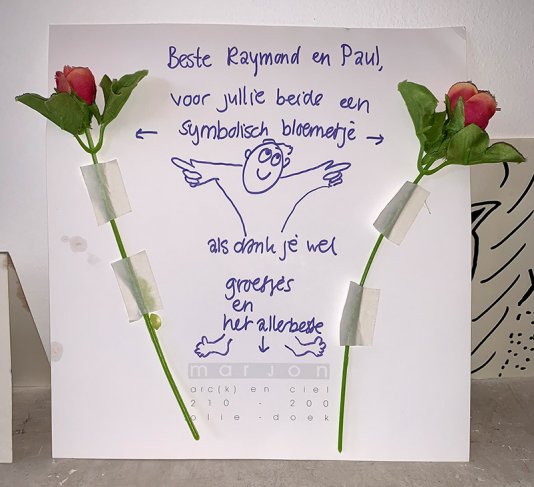 Beste Raymond en Paul,
voor jullie beide een
← symbolisch bloemetje →
als dank je wel
groetjes
en
het allerbeste
↓
marjon
arc(k) en ciel
210 - 200
olie-doek